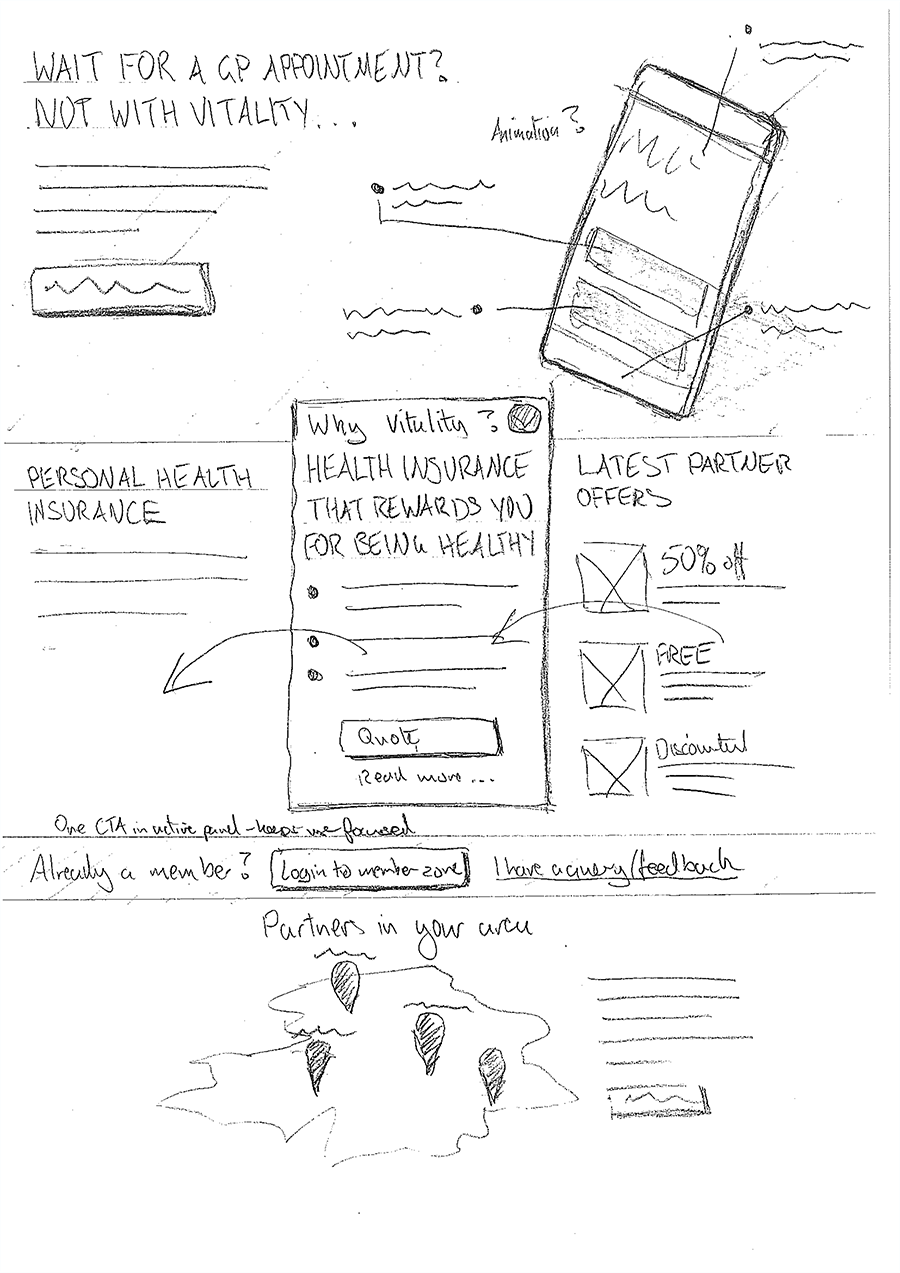 WAIT FOR A GP APPOINTMENT?
NOT WITH VITALITY...
Animation?
PERSONAL HEALTH
INSURANCE
Why Vitality?
HEALTH INSURANCE
THAT REWARDS YOU
FOR BEING HEALTHY
Quote
Read more...
LATEST PARTNER
OFFERS
50% off
FREE
Discounted
One CTA in active panel - keeps user focused
Already a member?
Login to member zone
I have a query/feedback
Partners in your area